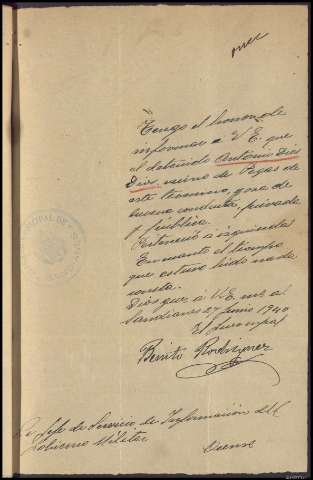 Tengo el honor de
informar a V.E. que
el detenido Antonio Dios
Dios, vecino de Pegas de
este término, goza de
buena conducta, privada
y pública.
Perteneció a izquierdas
En cuanto el tiempo
que estuvo huido nada
consta.
Dios gue. a V.E. ms. as.
Sandianes 27 Junio 1940
El
Benito Rodríguez
Sr. Jefe de Servicio de Información del
Gobierno Militar
Orense